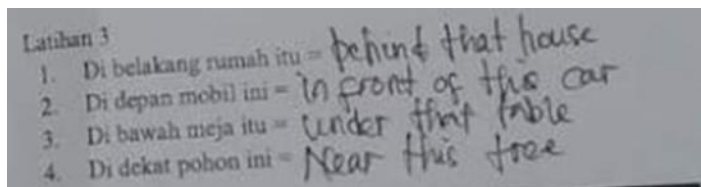 Latihan 3
1. Di belakang rumah itu = behind that house
2. Di depan mobil ini = in front of this car
3. Di bawah meja itu = under that table
4. Di dekat pohon ini = Near this tree